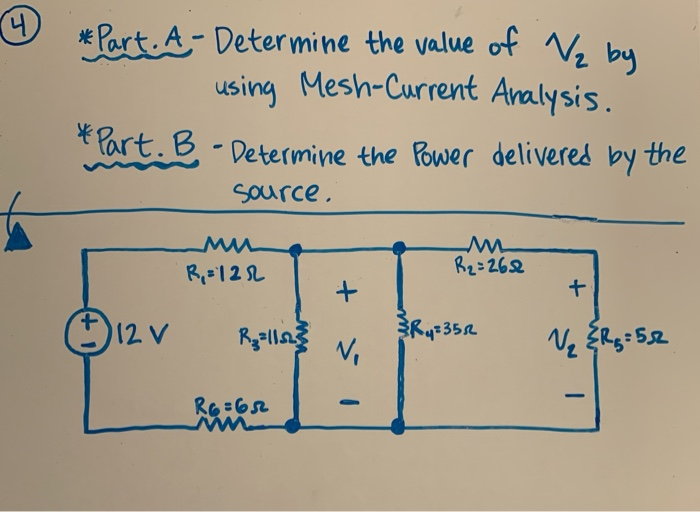 4
*Part. A - Determine the value of V₂ by
using Mesh-Current Analysis.
*Part. B - Determine the Power delivered by the
source.
R₁=12Ω
R₂=26Ω
+
+
+
-
12 V
R₃=11Ω
V₁
R₄=35Ω
V₂
R₅=5Ω
-
-
R6=6Ω